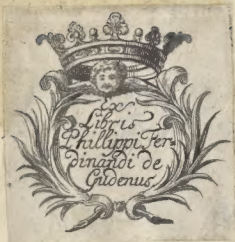 Ex
Libris
Phillippi Fer-
dinandi de
Gudenus.